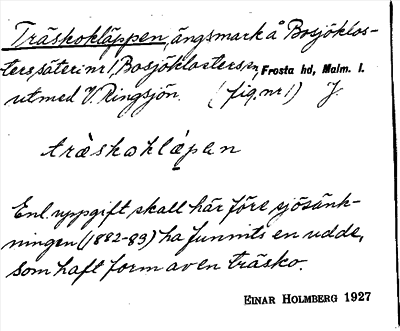 Träskokläppen, ängsmark å Bosjöklos-
ters säteri nr 1, Bosjöklosters sn, Frosta hd, Malm. l.
utmed V. Ringsjön. (fig. nr 1) J.
tràskoklápen
Enl. uppgift skall här före sjösänk-
ningen (1882-83) ha funnits en udde,
som haft form av en träsko.
EINAR HOLMBERG 1927